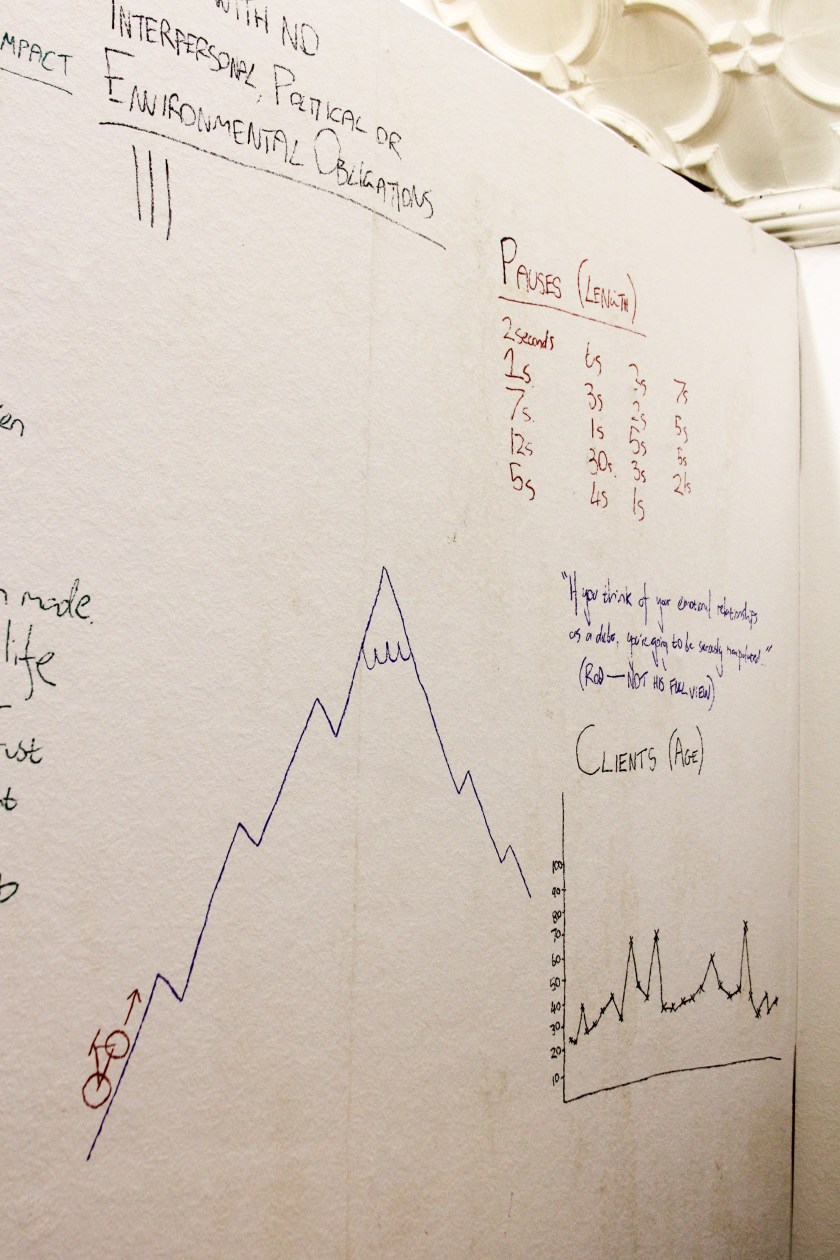 MPACT
WITH NO
INTERPERSONAL, POLITICAL OR
ENVIRONMENTAL OBLIGATIONS
PAUSES (LENGTH)
2 seconds
1s.
7s.
12s
5s
6s
3s
1s
30s.
4s
2s
5s
3s
1s
7s
5s
5s
en
made.
life
ust
"If you think of your emotional relationships
as a debt, you're going to be seriously
(ROD — NOT HIS FULL VIEW)
CLIENTS (AGE)
100
90
80
70
60
50
40
30
20
10